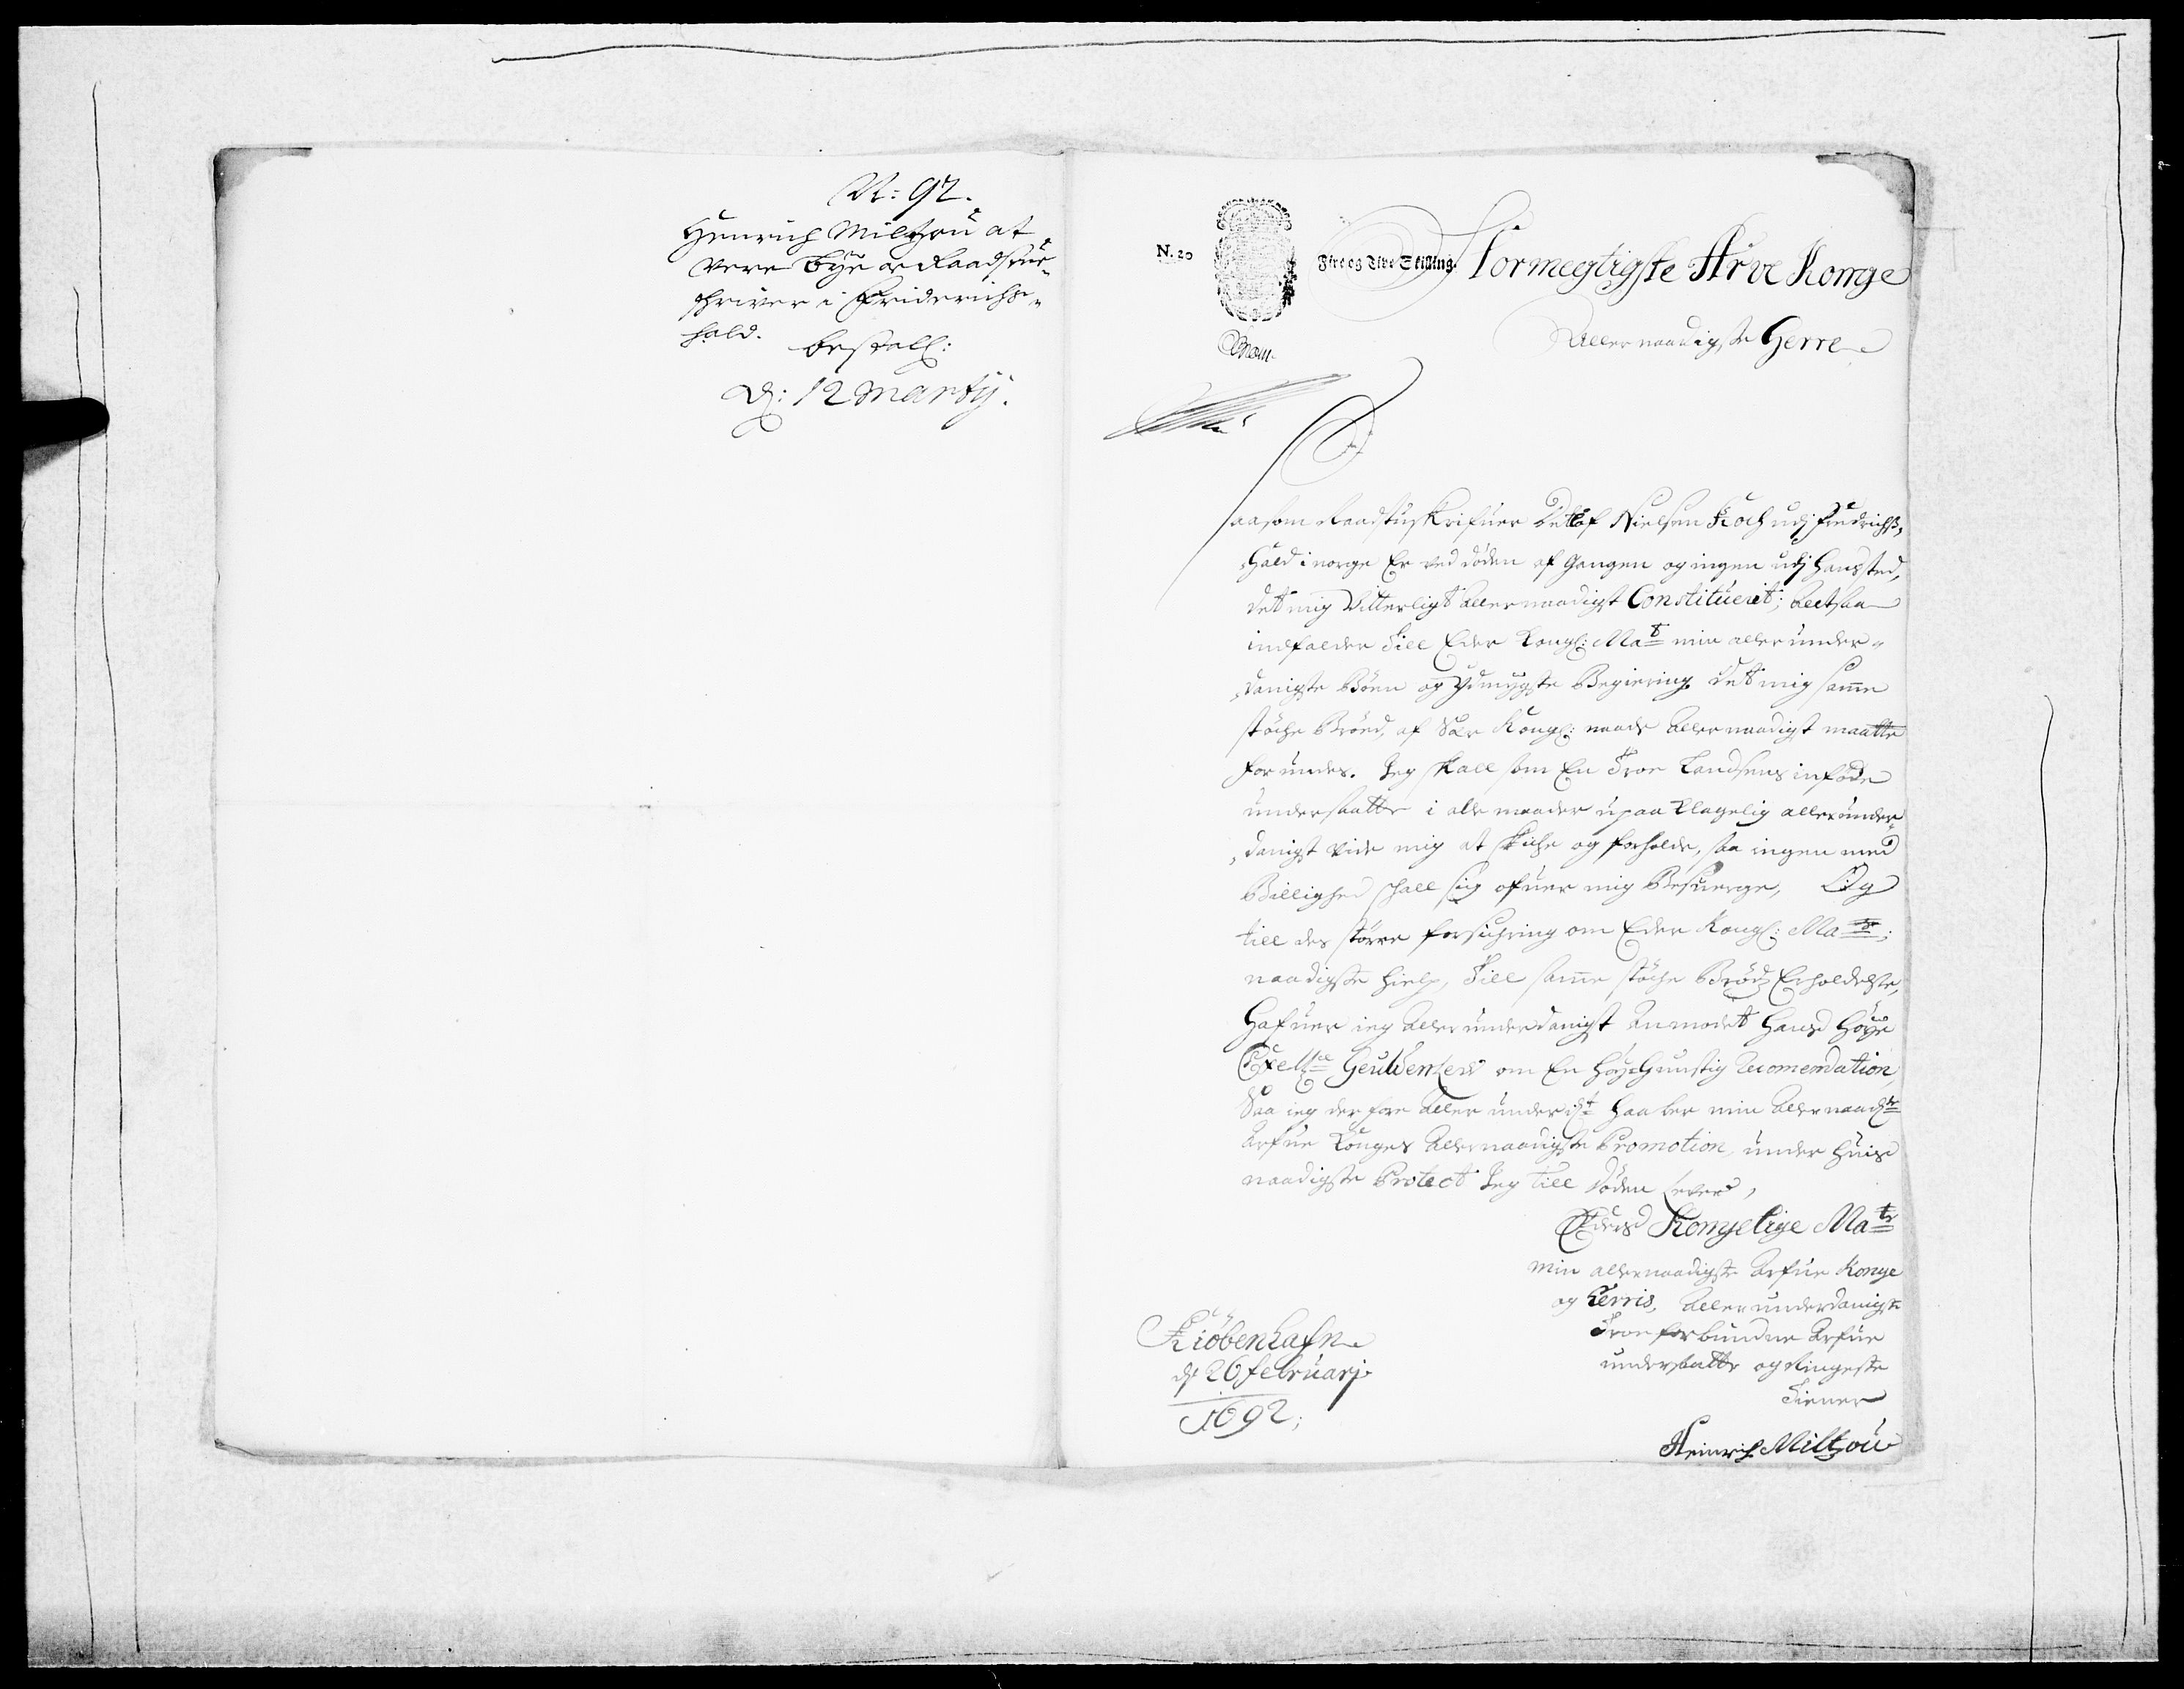 N: 97.
Henrich Miltzou at
være Bye oc Raadstue-
schriver i Friderichs-
hald.
bestall:
D: 12 Martij.
N. 20
Fire og Tive Skilling.
Stormegtigste Arve Konge
Allernaadigste Herre
Saasom Raadstuskrifuer Detlof Nielsen Koch udj Fredrichß-
hald i norge Er ved døden af Gangen og ingen udj hans sted,
det mig Vitterligt allernaadigst Constituerit;
indfalder Till Eder Kongl: Matt min allerunder-
danigste Bøen og Ydmygste Begiering det mig samme
støche Brød, af Kongl: naade allernaadigst maatte
forundes. Jeg skall som En Troe Landsens infødde
undersaatte i alle maader upaa klagelig allerunder-
danigst vide mig at skiche og forholde, saa ingen med
Billighed schall sig ofuer mig Besuerge, Og
till des større forsichring om Eder Kongl: Matt;
naadigste hielp, Till samme støche Brødz Erholdelse,
Hafuer ieg allerunderdanigst Anmodet Hans Høye
Excellce Geuldenlew om En høyGunstig Recomendation
Saa ieg der fore aller underdt haaber min allernaadte
Arfue Konges Allernaadigste Promotion, under huis
naadigste Protect Jeg till døden lever,
Eders Kongelige Matt
min allernaadigste Arfue Konge
og Herris, Allerunderdanigste
Troe forbundne Arfue
undersaatte og Ringeste
Tiener
Kiøbenhafn
d 26 februarj
1692;
Heinrich Miltzou